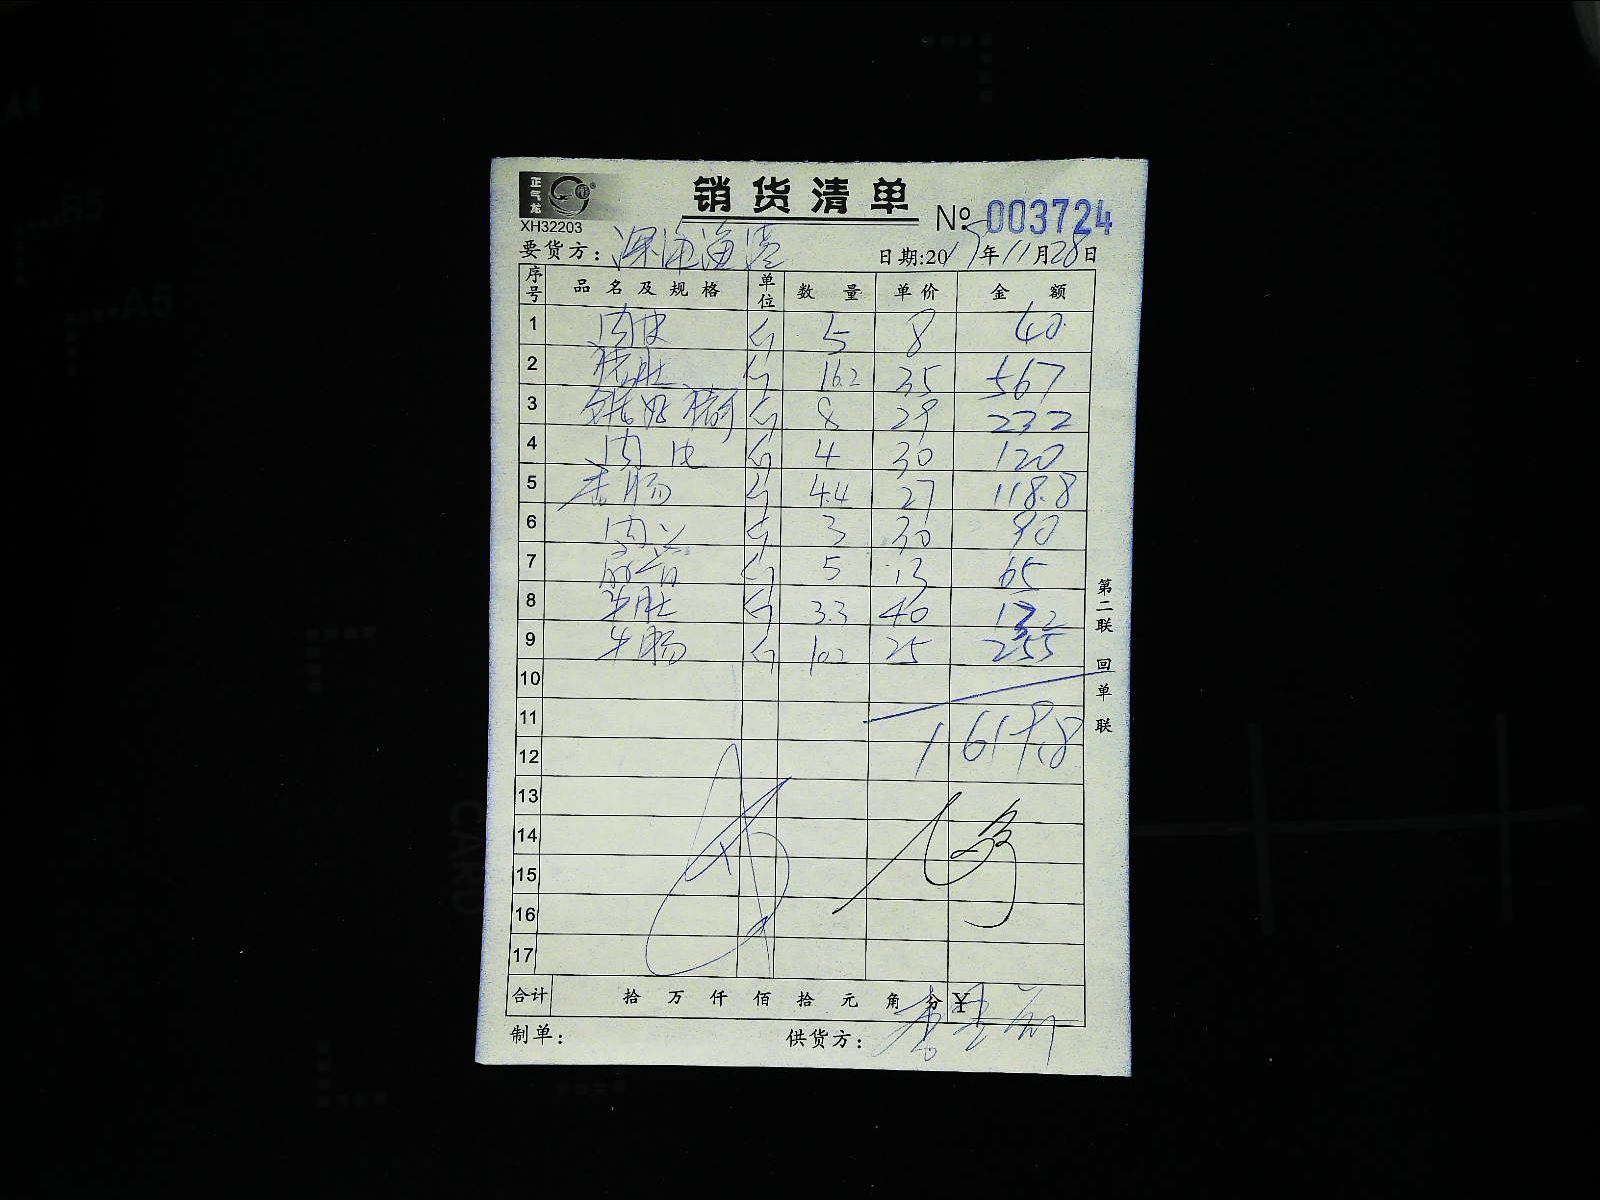 正气龙
XH32203
销货清单
№ 003724
要货方：深海渔港 日期:2017年11月28日
序号 品名及规格 单位 数量 单价 金额
1 肉皮 斤 5 8 40
2 猪肚 斤 16.2 35 567
3 斤 8 29 232
4 肉 斤 4 30 120
5 肠 斤 4.4 27 118.8
6 肉 斤 3 30 90
7 斤 5 13 65
8 牛肚 斤 3.3 40 132
9 牛肠 斤 10.2 25 255
10
11 1619.8
12
13
14
15
16
17
合计 拾 万 仟 佰 拾 元 角 分 ¥
制单： 供货方：
第二联 回单联